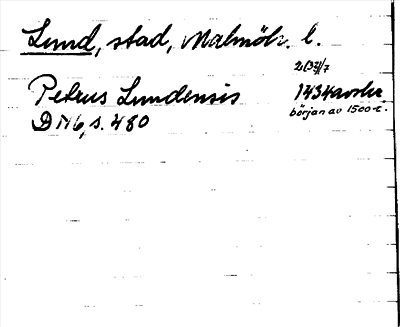 Lund, stad, Malmöh. l.
Petrus Lundensis 1434 avskr.
början av 1500-t.
DN 6, s. 480